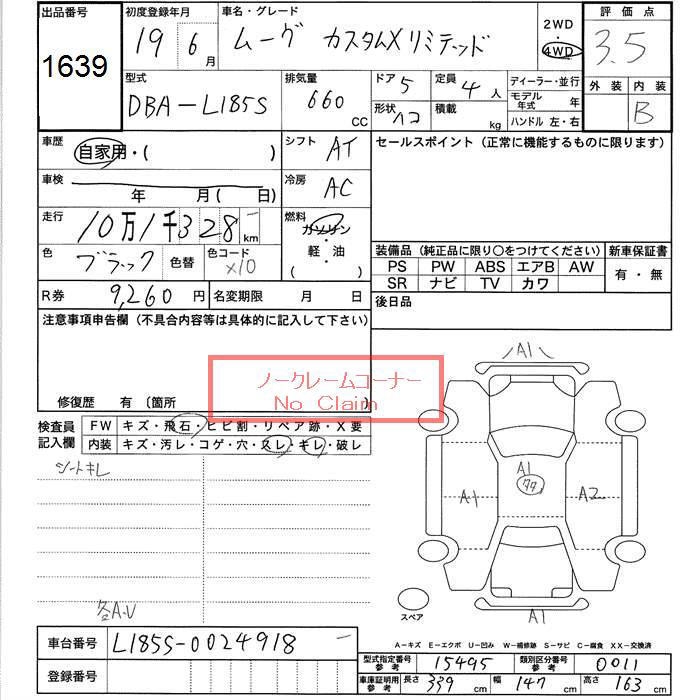 出品番号 初度登録年月 車名・グレード 評価点
1639 19年 6月 ムーヴ カスタムXリミテッド 2WD 4WD 3.5
型式 排気量 ドア 5 定員 4人 ディーラー・並行 外装 内装
DBA-L185S 660 CC 形状 ハコ 積載 kg モデル年式 年 B
ハンドル 左・右
車歴 自家用・( ) シフト AT セールスポイント (正常に機能するものに限ります)
車検 年 月( 日) 冷房 AC
走行 10万1千328km 燃料 ガソリン・軽油 ( )
色 ブラック 色替 色コード X10
装備品 (純正品に限り〇をつけてください) 新車保証書
PS PW ABS エアB AW 有・無
SR ナビ TV カワ
R券 9,260円 名変期限 月 日 後日品
注意事項申告欄 (不具合内容等は具体的に記入して下さい)
ノークレームコーナー
No Claim
修復歴 有 (箇所
検査員記入欄 FW キズ・飛石・ヒビ割・リペア跡・X要
内装 キズ・汚レ・コゲ・穴・スレ・キレ・破レ
シートキレ
A1
A1
A1 A2
A1
スペア
各A.U
A-キズ E-エクボ U-凹み W-補修跡 S-サビ C-腐食 XX-交換済
車台番号 L185S-0024918
型式指定番号 15495 類別区分番号 0011
登録番号
車庫証明用参考 長さ 339cm 幅 147cm 高さ 163cm